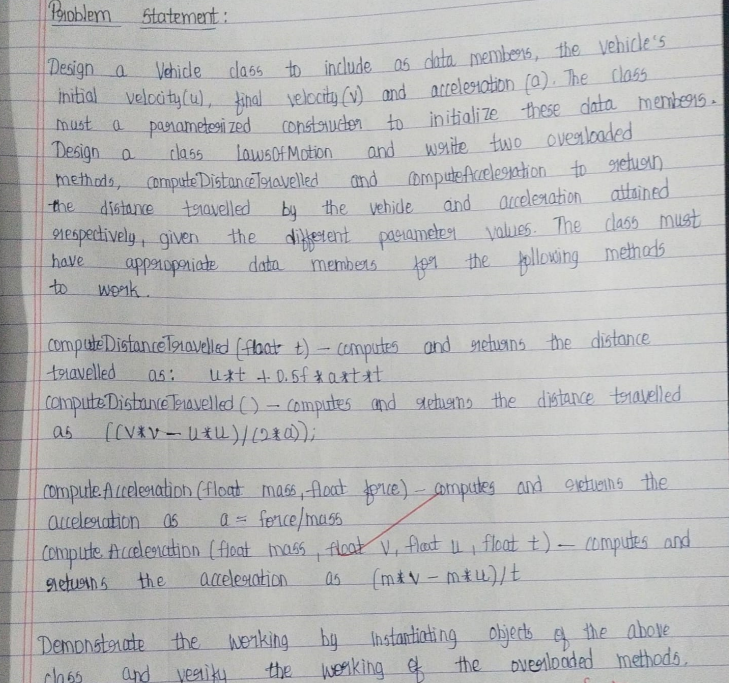 Problem Statement:
Design a Vehicle class to include as data members, the vehicle's
initial velocity(u), final velocity(v) and acceleration (a). The class
must a parameterized constructer to initialize these data members.
Design a class LawsOfMotion and write two overloaded
methods, computeDistanceTravelled and computeAcceleration to return
the distance travelled by the vehicle and acceleration attained
respectively, given the different parameter values. The class must
have appropriate data members for the following methods
to work.
computeDistanceTravelled (float t) - computes and returns the distance
travelled as: u*t + 0.5f * a*t*t
computeDistanceTravelled () - computes and returns the distance travelled
as ((v*v - u*u)/(2*a));
computeAcceleration (float mass, float force) - computes and returns the
acceleration as a = force/mass
compute Acceleration (float mass, float v, float u, float t) - computes and
returns the acceleration as (m*v - m*u)/t
Demonstrate the working by instantiating objects of the above
class and verify the working of the overloaded methods.